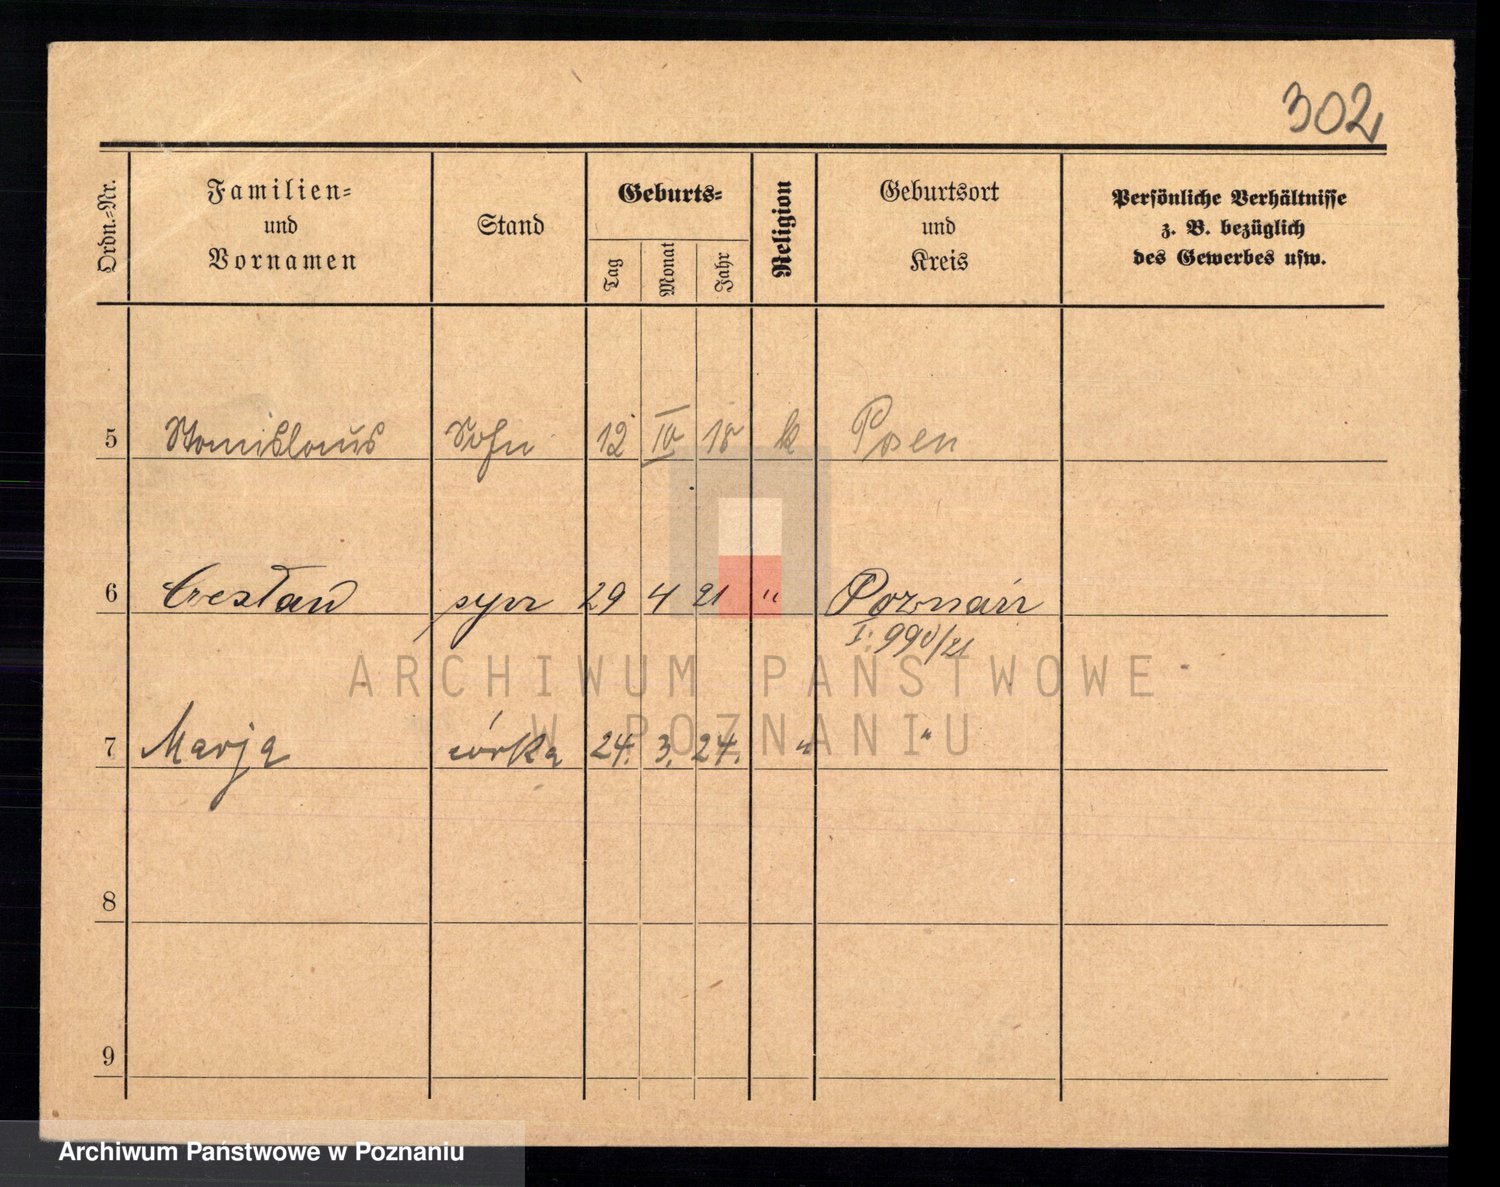 302
Ordn.=Nr.
Familien=
und
Vornamen
Stand
Geburts=
Tag
Monat
Jahr
Religion
Geburtsort
und
Kreis
Persönliche Verhältnisse
z. B. bezüglich
des Gewerbes usw.
5 Stanislaus Sohn 12 IV 18 k Posen
6 Czesław syn 29 4 21 " Poznań
I. 990/21
7 Marja córka 24. 3. 24. " "
8
9
ARCHIWUM PAŃSTWOWE
W POZNANIU
Archiwum Państwowe w Poznaniu